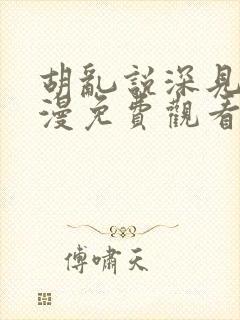 胡亂說深見
漫免費觀看
傅嘯天